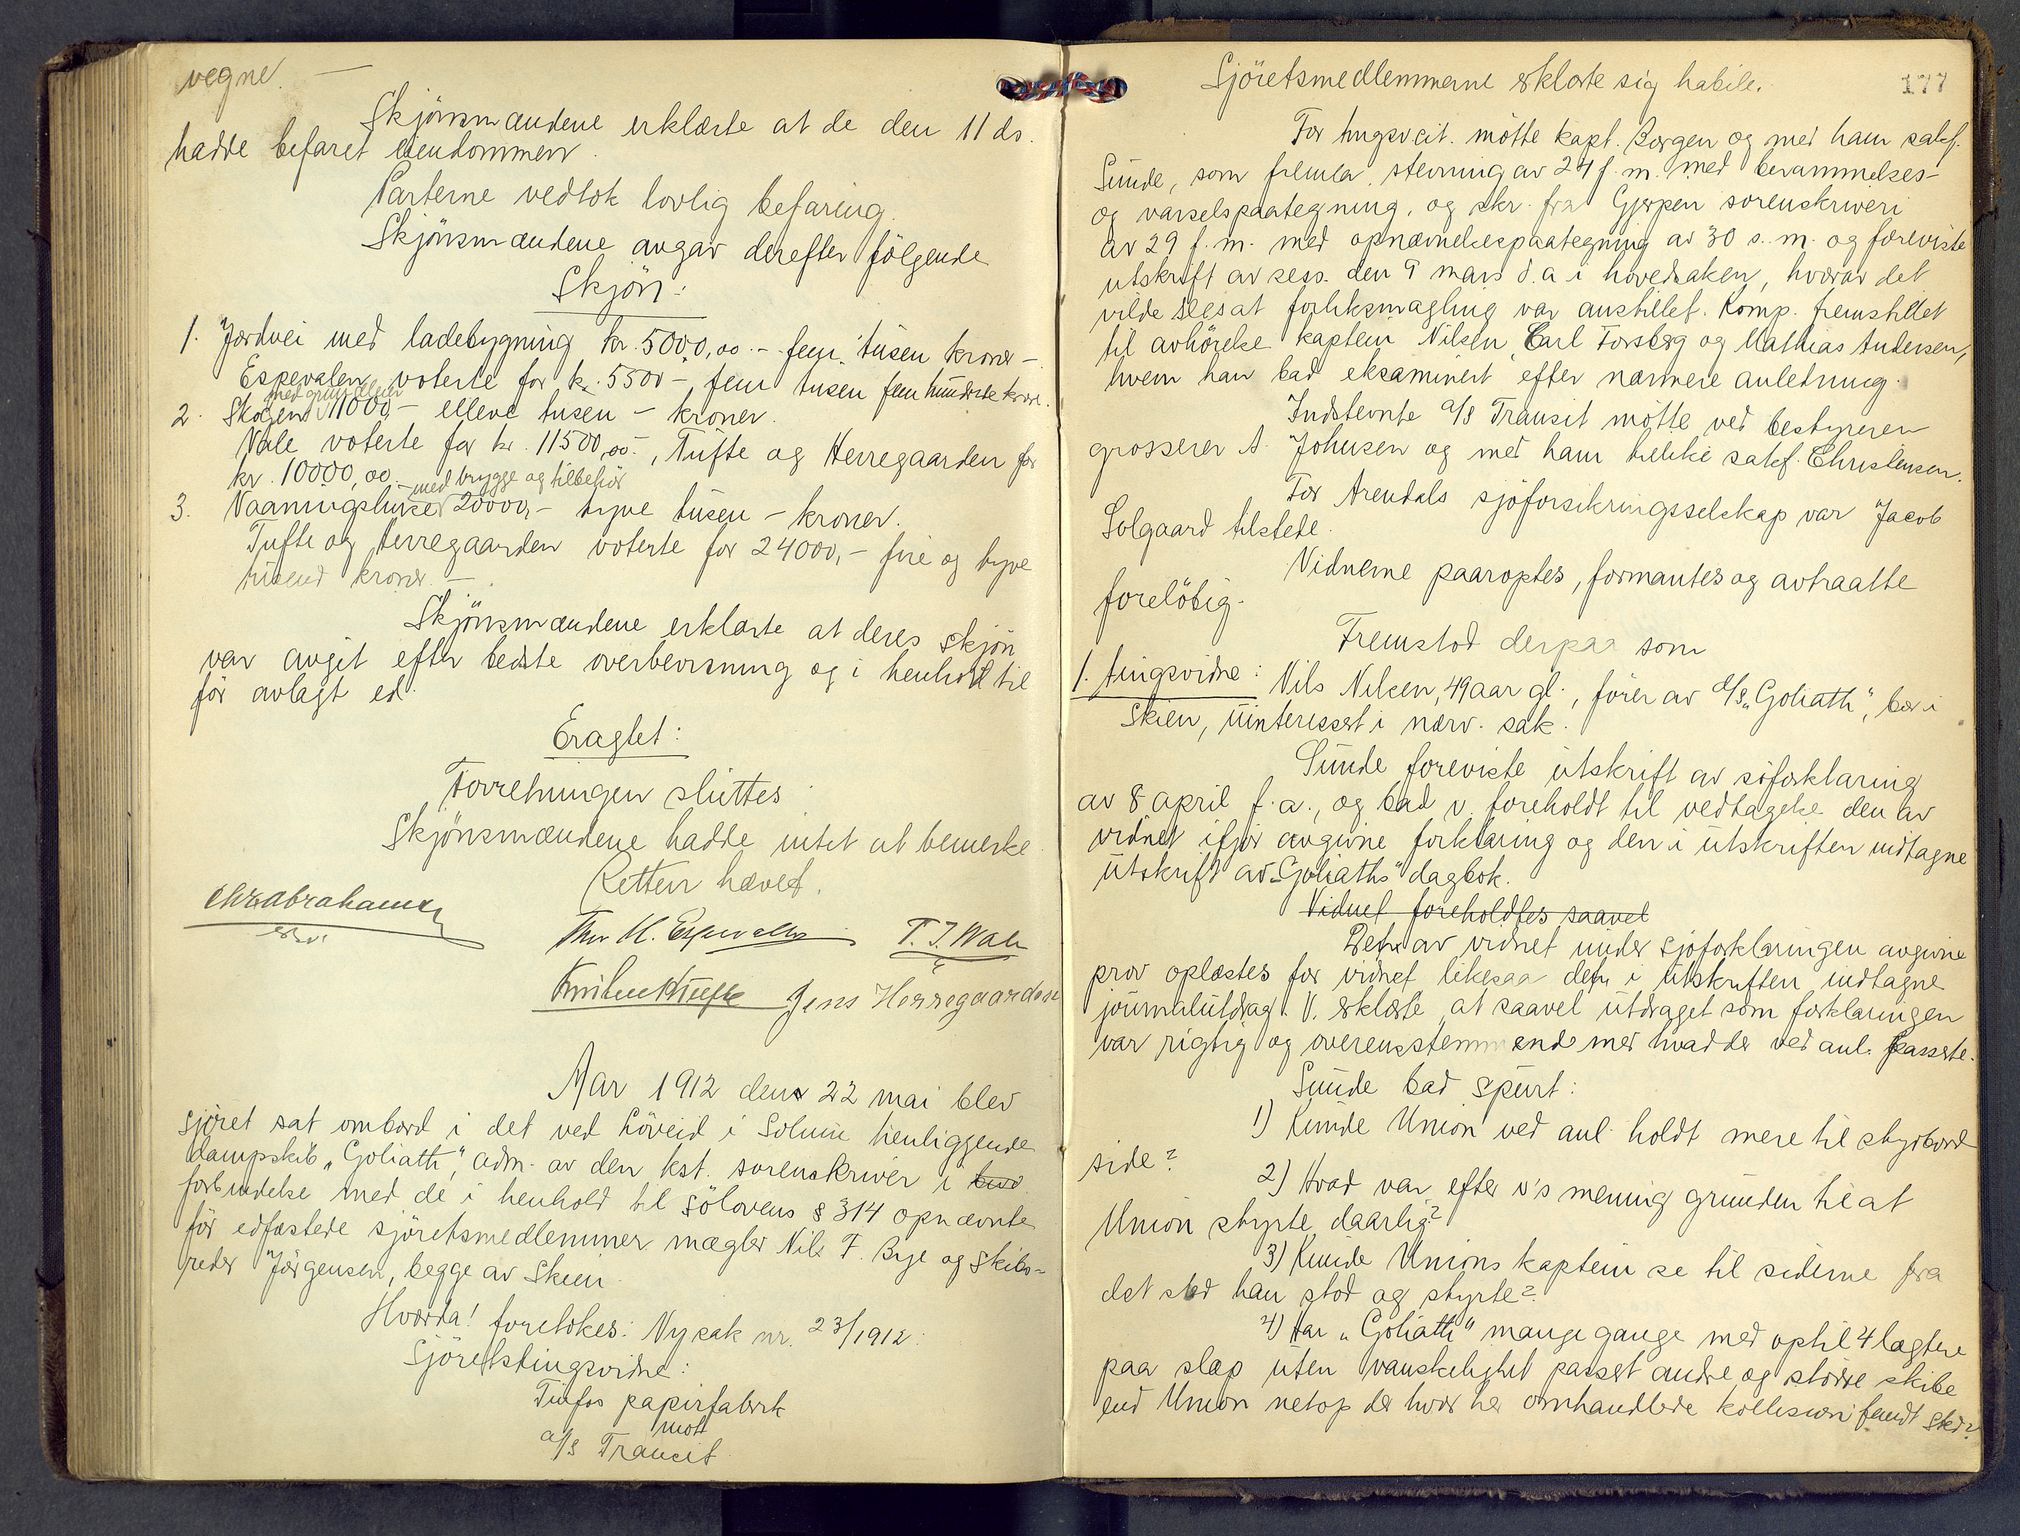 vegne. —
Skjönsmændene erklærte at de den 11 ds.
hadde befaret eiendommen.
Parterne vedtok lovlig befaring.
Skjönsmændene avgav derefter följende
Skjön:
1. Jordvei med ladebygning kr. 5000,00 – fem tusen kroner –
Espevalen voterte for kr. 5500 –, fem tusen fem hundrede kroner.
med grund eller
2. Skogen 11000,– elleve tusen – kroner.
Vale voterte for kr. 11500,00 –, Tufte og Herregaarden for
kr. 10000,00 –
med brygge og tilbehör
3. Vaaningshuset 20000,– tyve tusen – kroner.
Tufte og Herregaarden voterte for 24000,– fire og tyve
tusend kroner. –
Skjönsmændene erklærte at deres skjön
var avgit efter bedste overbevisning og i henhold til
för avlagt ed.
Eragtet:
Forretningen sluttes.
Skjönsmændene hadde intet at bemerke.
Retten hævet.
Chr Abrahamsen
Thor H. Espevalen T. J. Wale
Knut Tufte Jens Herregaarden
Aar 1912 den 22 mai blev
sjöret sat ombord i det ved Löveid i Solum henliggende
dampskib „Goliath", adm. av den kst. sorenskriver i
forbindelse med de i henhold til sjölovens § 314 opnævnte
för edfæstede sjöretsmedlemmer mægler Nils F. Bye og skibs-
reder Jörgensen, begge av Skien.
Hvorda! foretokes: Ny sak nr. 23/1912:
Sjöretstingsvidne:
Tinfos papirfabrik
mot
a/s Transit.
177
Sjöretsmedlemmerne erklærte sig habile.
For tingsvcit. mötte kapt. Borgen og med ham sakf.
Sunde, som fremla stevning av 24 f. m. med berammelses-
og varselspaategning, og skr. fra Gjerpen sorenskriveri
av 29 f. m. med opnævnelsespaategning av 30 s. m. og foreviste
utskrift av sess. den 9 mars d. a i hovedsaken, hvorav det
vilde sees at forliksmægling var anstillet. Komp. fremstillet
til avhörelse kaptein Nilsen, Carl Forsberg og Mathias Andersen,
hvem han bad eksaminert efter nærmere anledning.
Indstevnte a/s Transit mötte ved bestyreren
grosserer A. Johnsen og med ham likeke sakf. Christensen.
For Arendals sjöforsikringsselskap var Jacob
Solgaard tilstede.
Vidnerne paaroptes, formantes og avtraatte
foreløbig.
Fremstod derpaa som
1. tingsvidne: Nils Nilsen, 49 aar gl., förer av d/s „Goliath", bor i
Skien, uinteressert i nærv. sak.
Sunde foreviste utskrift av söforklaring
av 8 april f. a., og bad v. foreholdt til vedtagelse den av
vidnet ifjor avgivne forklaring og den i utskriften indtagne
utskrift av „Goliaths" dagbok.
Vidnet foreholdtes saavel
Den av vidnet under sjöforklaringen avgivne
prov oplæstes for vidnet likesaa det i utskriften indtagne
journalutdrag. V. erklærte at saavel utdraget som forklaringen
var rigtig og overensstemmende med hvad der ved anl. passerte.
Sunde bad spurt:
1) Kunde Union ved anl. holdt mere til styrbord
side?
2) Hvad var efter v's mening grunden til at
Union styrte daarlig?
3) Kunde Unions kaptein se til siderne fra
det sted han stod og styrte?
4) Har „Goliath" mange gange med optil 4 lægtere
paa slæp uten vanskelighet passert andre og större skibe
end Union netop der hvor her omhandlede kollision fandt sted?